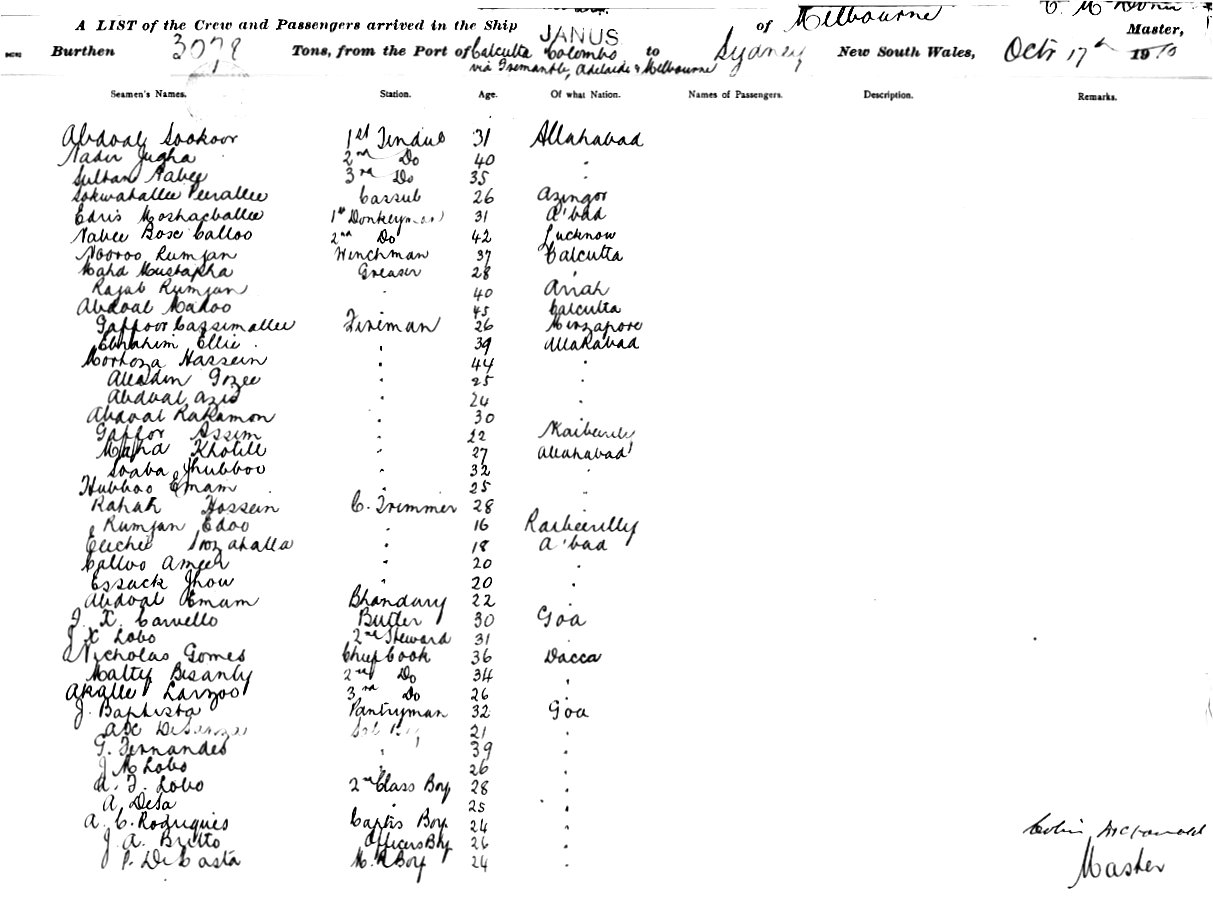 A LIST of the Crew and Passengers arrived in the Ship JANUS of Melbourne
Master,
Burthen 3078 Tons, from the Port of Calcutta Colombo to Sydney New South Wales, Octr 17th 1910
via Fremantle, Adelaide & Melbourne
Seamen's Names. Station. Age. Of what Nation. Names of Passengers. Description. Remarks.
Abdoal Sookoor 1st Tindub 31 Allahabad
Nadir Jugha 2nd Do 40 "
Sultan Nabee 3rd Do 35 "
Sokwahallee Peerallee Cassub 26 Azingor
Edris Moshacballee 1st Donkeyman 31 A'bad
Nabee Bose Calloo 2nd Do 42 Lucknow
Nooroo Rumjan Winchman 37 Calcutta
Mahd Mustapha Greaser 28 "
Rajab Rumjan " 40 Arrah
Abdoal Madoo 45 Calcutta
Gaffoor Cassimallee Fireman 26 Mirzapore
Ebrahim Ellie " 39 Allahabad
Mortoza Hassein " 44 "
Alladin Gozee " 25 "
Abdoal Azis " 24 "
Abdoal Rahamon " 30 "
Gaffor Assim " 22
Mahd Khotill " 27 Allahabad
Soaba Jhubboo " 32 "
Hubboo Emam " 25 "
Rahah Hossein C. Trimmer 28 "
Rumjan Edoo " 16 Raibeerilly
Eeichee " 18 A'bad
Calloo Ameer " 20 "
Essack Jhow " 20 "
Abdoal Emam Bhandary 22 "
J. X. Carvello Butler 30 Goa
J X Lobo 2nd Steward 31 "
Nicholas Gomes Chief Cook 36 Dacca
Matty Bisanty 2nd Do 34 "
Akallee Larzoo 3rd Do 26 "
J. Baptista Pantryman 32 Goa
DeSouza 21 "
G. Fernandes " 39 "
J M Lobo 26 "
A. F. Lobo 2nd Class Boy 28 "
A. Desa " 25 "
A. C. Rodrigues Capt's Boy 24 "
J. A. Britto Officers Boy 26 "
P. De Casta M. R Boy 24 "
Colin McDonald
Master